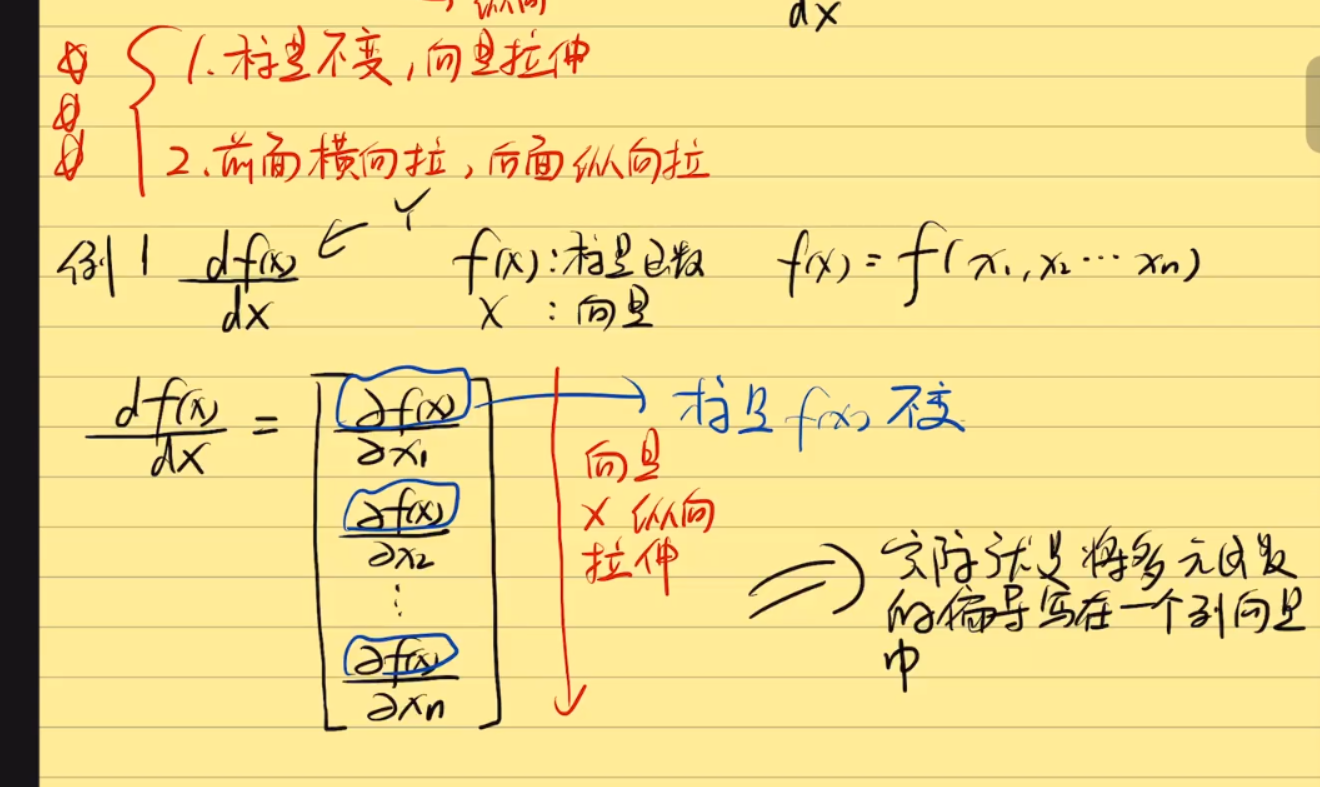 → 纵向
dx
1.标量不变,向量拉伸
2.前面横向拉,后面纵向拉
例1 df(x)/dx ← Y f(x):标量函数 f(x)=f(x₁,x₂…xₙ)
x :向量
df(x)/dx = [∂f(x)/∂x₁
∂f(x)/∂x₂
⋮
∂f(x)/∂xₙ]
→ 标量f(x)不变
向量
x 纵向
拉伸
⇒ 实际就是将多元函数
的偏导写在一个列向量
中